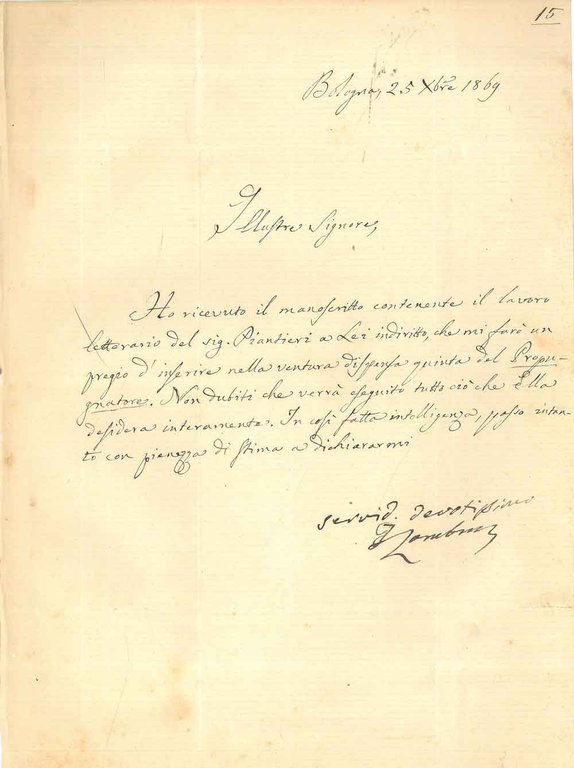 15
Bologna, 25 Xbre 1869
Illustre Signore,
Ho ricevuto il manoscritto contenente il lavoro
letterario del sig. Piantieri a Lei indiritto, che mi farò un
pregio d'inserire nella ventura dispensa quinta del Propu-
gnatore. Non dubiti che verrà eseguito tutto ciò che Ella
desidera interamente. In così fatta intelligenza, passo intan-
to con pienezza di stima a dichiararmi
servid. devotissimo
FZambrini